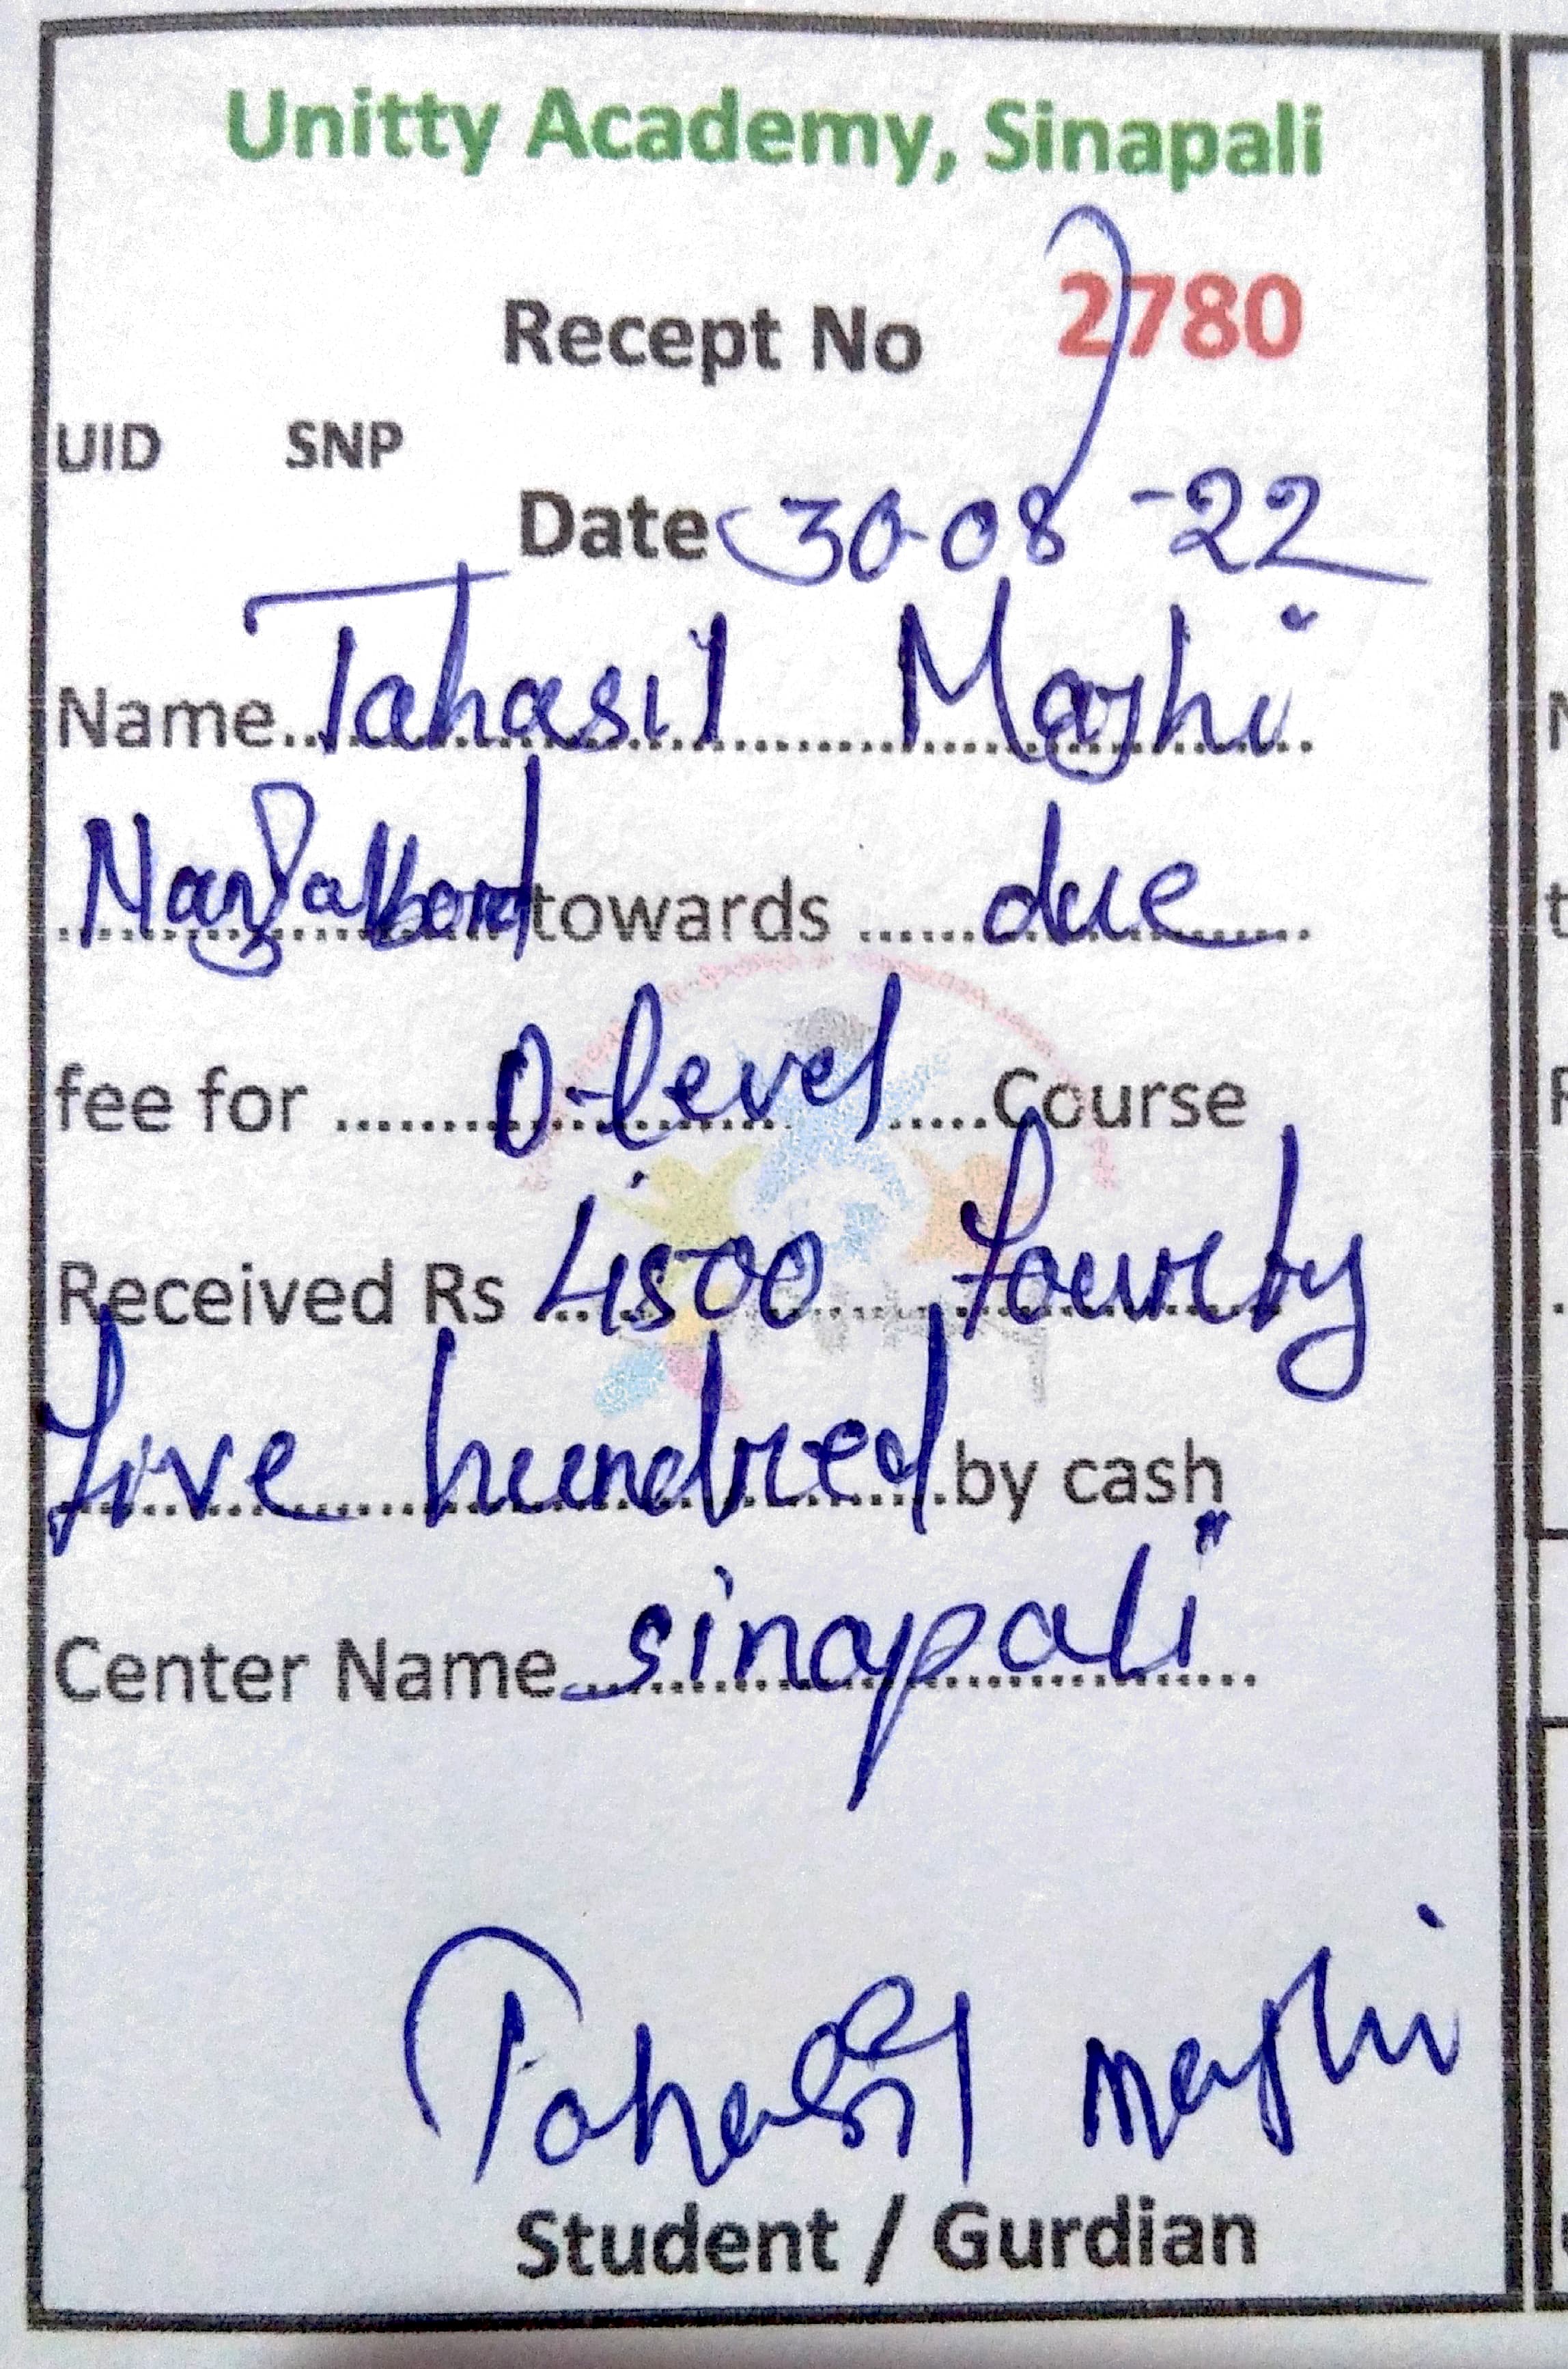 Unitty Academy, Sinapali
Recept No 2780
UID SNP
Date 30-08-22
Name Tahasil Majhi
towards due
fee for O-level Course
Received Rs 4500 Fourty
Five hundred by cash
Center Name sinapali
Tahasil majhi
Student / Gurdian